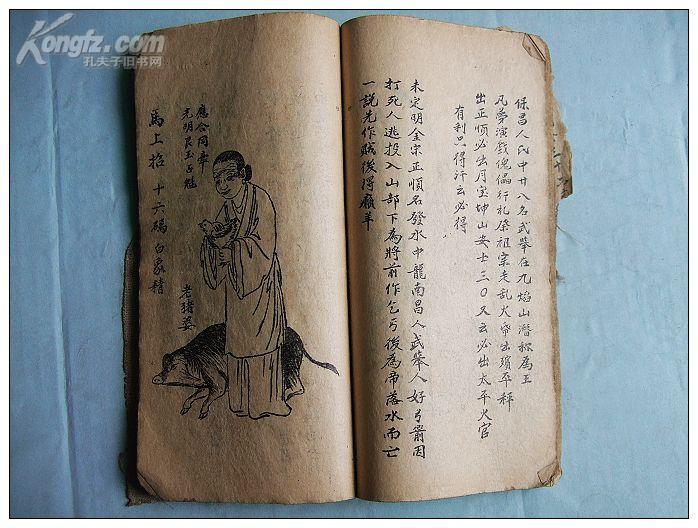 保昌人氏中廿八名武舉在九焰山潛称為王
凡夢演戲傀儡行礼祭祖宗走乱火帝出殯平秤
出正順必出月宝坤山安士三〇又云必出太平火官
有利只得汗云必得
未定明金宗正順名發水中龍南昌人武舉人好弓箭因
打死人逃投入山部下為將前作乞丐後為帝落水而亡
一説先作賊後得癲羊
應合同牽
元明良玉占魁
馬上招 十六碼 白象精
老猪婆
Kongfz.com
孔夫子旧书网